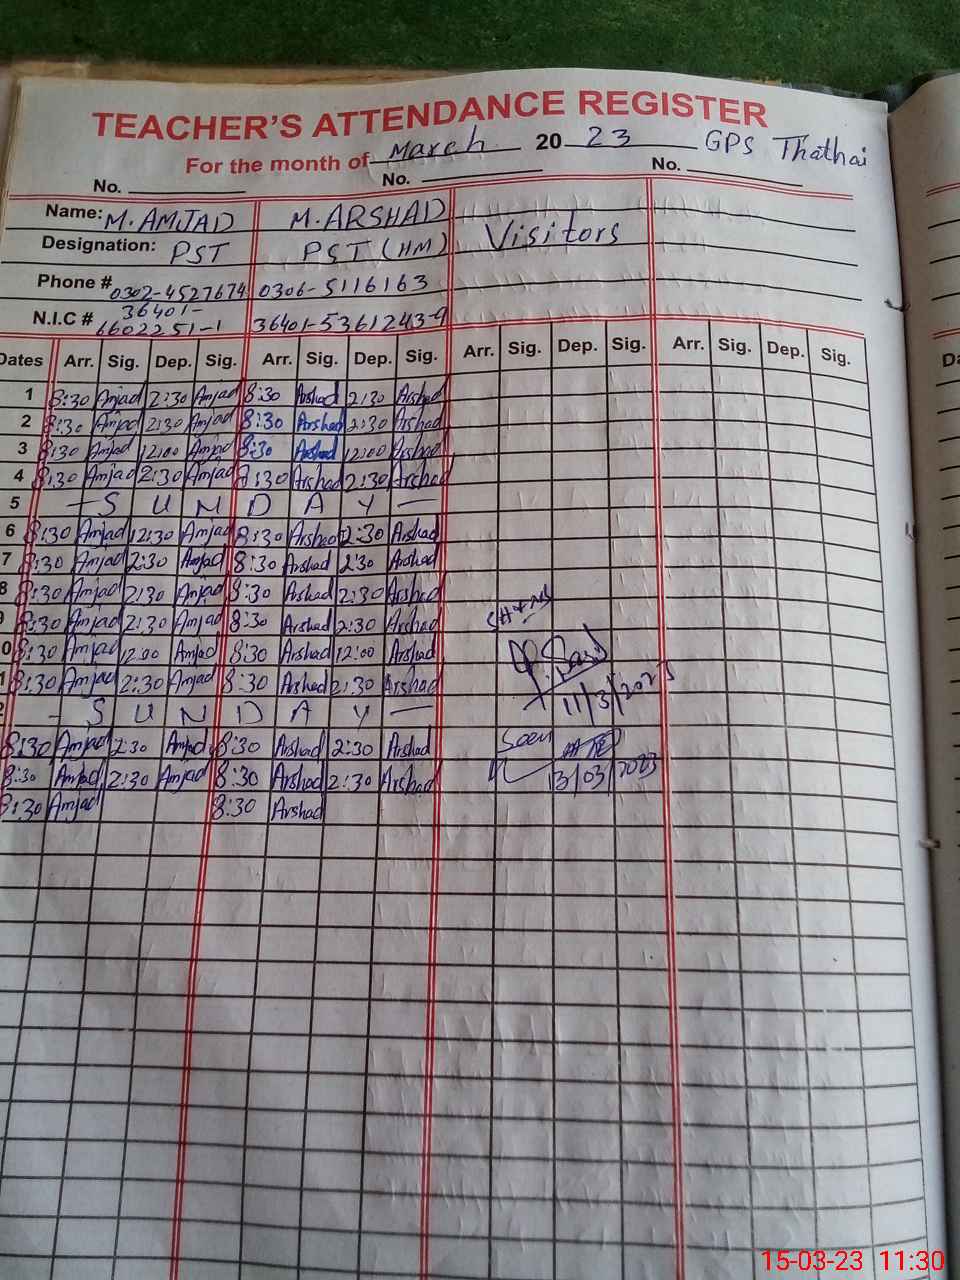 TEACHER'S ATTENDANCE REGISTER
For the month of March 2023 GPS Thathai
No. No. No.
Name: M. AMJAD M. ARSHAD
Designation: PST PST (HM) Visitors
Phone # 0302-4527674 0306-5116163
N.I.C # 36401-6602251-1 36401-5361243-9
Dates Arr. Sig. Dep. Sig. Arr. Sig. Dep. Sig. Arr. Sig. Dep. Sig. Arr. Sig. Dep. Sig.
1 8:30 Amjad 2:30 Amjad 8:30 Arshad 2:30 Arshad
2 8:30 Amjad 2:30 Amjad 8:30 Arshad 2:30 Arshad
3 8:30 Amjad 12:00 Amjad 8:30 Arshad 12:00 Arshad
4 8:30 Amjad 2:30 Amjad 8:30 Arshad 2:30 Arshad
5 - S U N D A Y -
6 8:30 Amjad 2:30 Amjad 8:30 Arshad 2:30 Arshad
7 8:30 Amjad 2:30 Amjad 8:30 Arshad 2:30 Arshad
8 8:30 Amjad 2:30 Amjad 8:30 Arshad 2:30 Arshad
8:30 Amjad 2:30 Amjad 8:30 Arshad 2:30 Arshad
0 8:30 Amjad 12:00 Amjad 8:30 Arshad 12:00 Arshad
1 8:30 Amjad 2:30 Amjad 8:30 Arshad 2:30 Arshad 11/3/2023
2 - S U N D A Y -
8:30 Amjad 2:30 Amjad 8:30 Arshad 2:30 Arshad Seen
8:30 Amjad 2:30 Amjad 8:30 Arshad 2:30 Arshad 13/03/2023
8:30 Amjad 8:30 Arshad
15-03-23 11:30